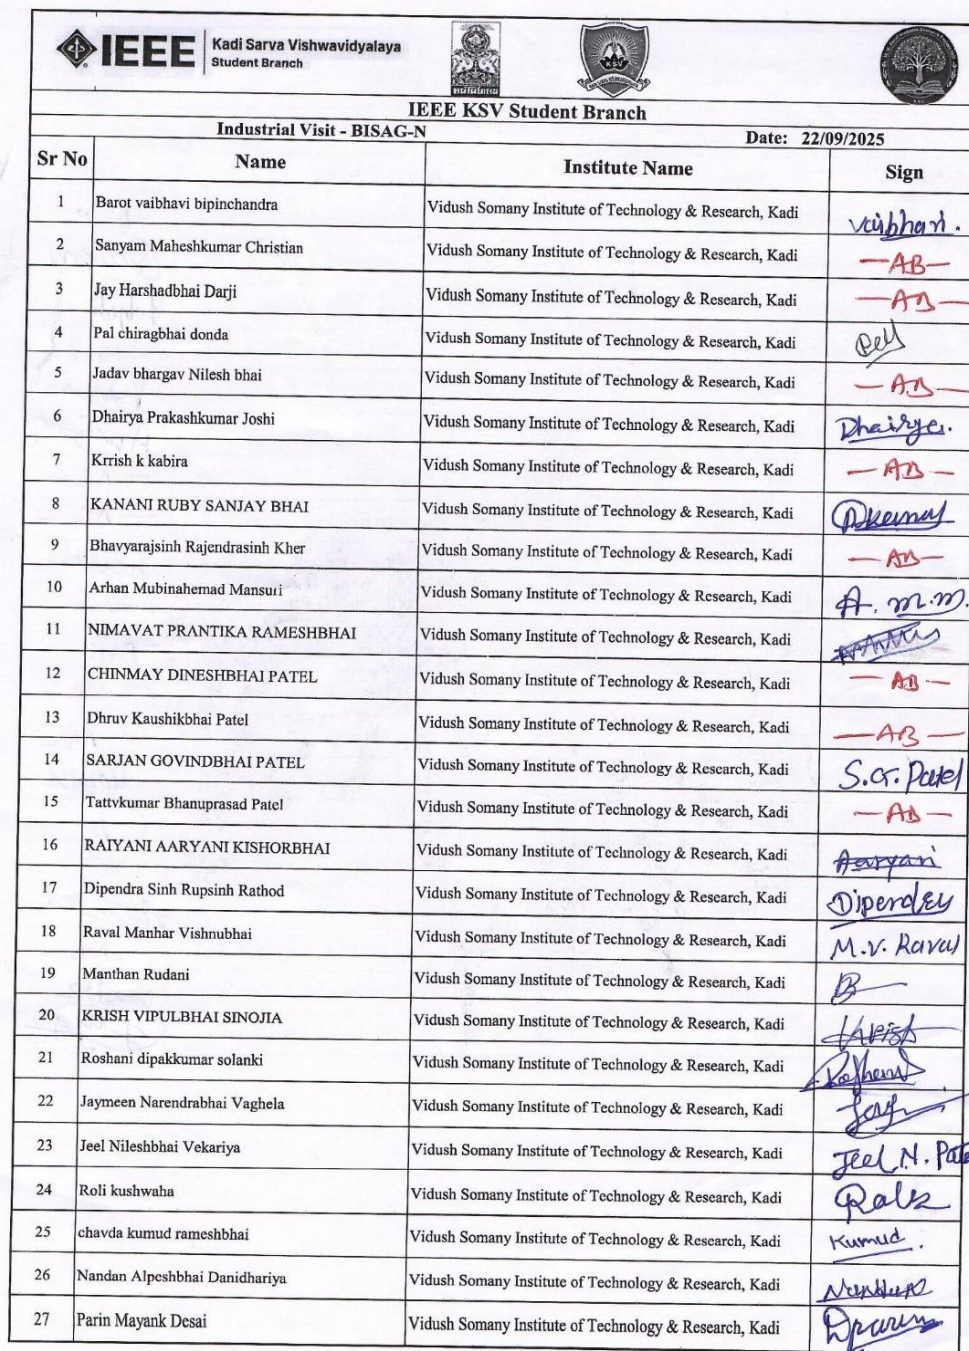 IEEE Kadi Sarva Vishwavidyalaya
Student Branch
KSV
IEEE KSV Student Branch
Industrial Visit - BISAG-N Date: 22/09/2025
Sr No Name Institute Name Sign
1 Barot vaibhavi bipinchandra Vidush Somany Institute of Technology & Research, Kadi Vaibhavi.
2 Sanyam Maheshkumar Christian Vidush Somany Institute of Technology & Research, Kadi —AB—
3 Jay Harshadbhai Darji Vidush Somany Institute of Technology & Research, Kadi —AB—
4 Pal chiragbhai donda Vidush Somany Institute of Technology & Research, Kadi
5 Jadav bhargav Nilesh bhai Vidush Somany Institute of Technology & Research, Kadi —AB—
6 Dhairya Prakashkumar Joshi Vidush Somany Institute of Technology & Research, Kadi Dhairya.
7 Krrish k kabira Vidush Somany Institute of Technology & Research, Kadi —AB—
8 KANANI RUBY SANJAY BHAI Vidush Somany Institute of Technology & Research, Kadi
9 Bhavyarajsinh Rajendrasinh Kher Vidush Somany Institute of Technology & Research, Kadi —AB—
10 Arhan Mubinahemad Mansuri Vidush Somany Institute of Technology & Research, Kadi A. M.M.
11 NIMAVAT PRANTIKA RAMESHBHAI Vidush Somany Institute of Technology & Research, Kadi
12 CHINMAY DINESHBHAI PATEL Vidush Somany Institute of Technology & Research, Kadi —AB—
13 Dhruv Kaushikbhai Patel Vidush Somany Institute of Technology & Research, Kadi —AB—
14 SARJAN GOVINDBHAI PATEL Vidush Somany Institute of Technology & Research, Kadi S.G. Patel
15 Tattvkumar Bhanuprasad Patel Vidush Somany Institute of Technology & Research, Kadi —AB—
16 RAIYANI AARYANI KISHORBHAI Vidush Somany Institute of Technology & Research, Kadi Aaryani
17 Dipendra Sinh Rupsinh Rathod Vidush Somany Institute of Technology & Research, Kadi
18 Raval Manhar Vishnubhai Vidush Somany Institute of Technology & Research, Kadi M.V. Raval
19 Manthan Rudani Vidush Somany Institute of Technology & Research, Kadi
20 KRISH VIPULBHAI SINOJIA Vidush Somany Institute of Technology & Research, Kadi Krish
21 Roshani dipakkumar solanki Vidush Somany Institute of Technology & Research, Kadi
22 Jaymeen Narendrabhai Vaghela Vidush Somany Institute of Technology & Research, Kadi
23 Jeel Nileshbhai Vekariya Vidush Somany Institute of Technology & Research, Kadi Jeel N. Pate
24 Roli kushwaha Vidush Somany Institute of Technology & Research, Kadi
25 chavda kumud rameshbhai Vidush Somany Institute of Technology & Research, Kadi Kumud.
26 Nandan Alpeshbhai Danidhariya Vidush Somany Institute of Technology & Research, Kadi
27 Parin Mayank Desai Vidush Somany Institute of Technology & Research, Kadi